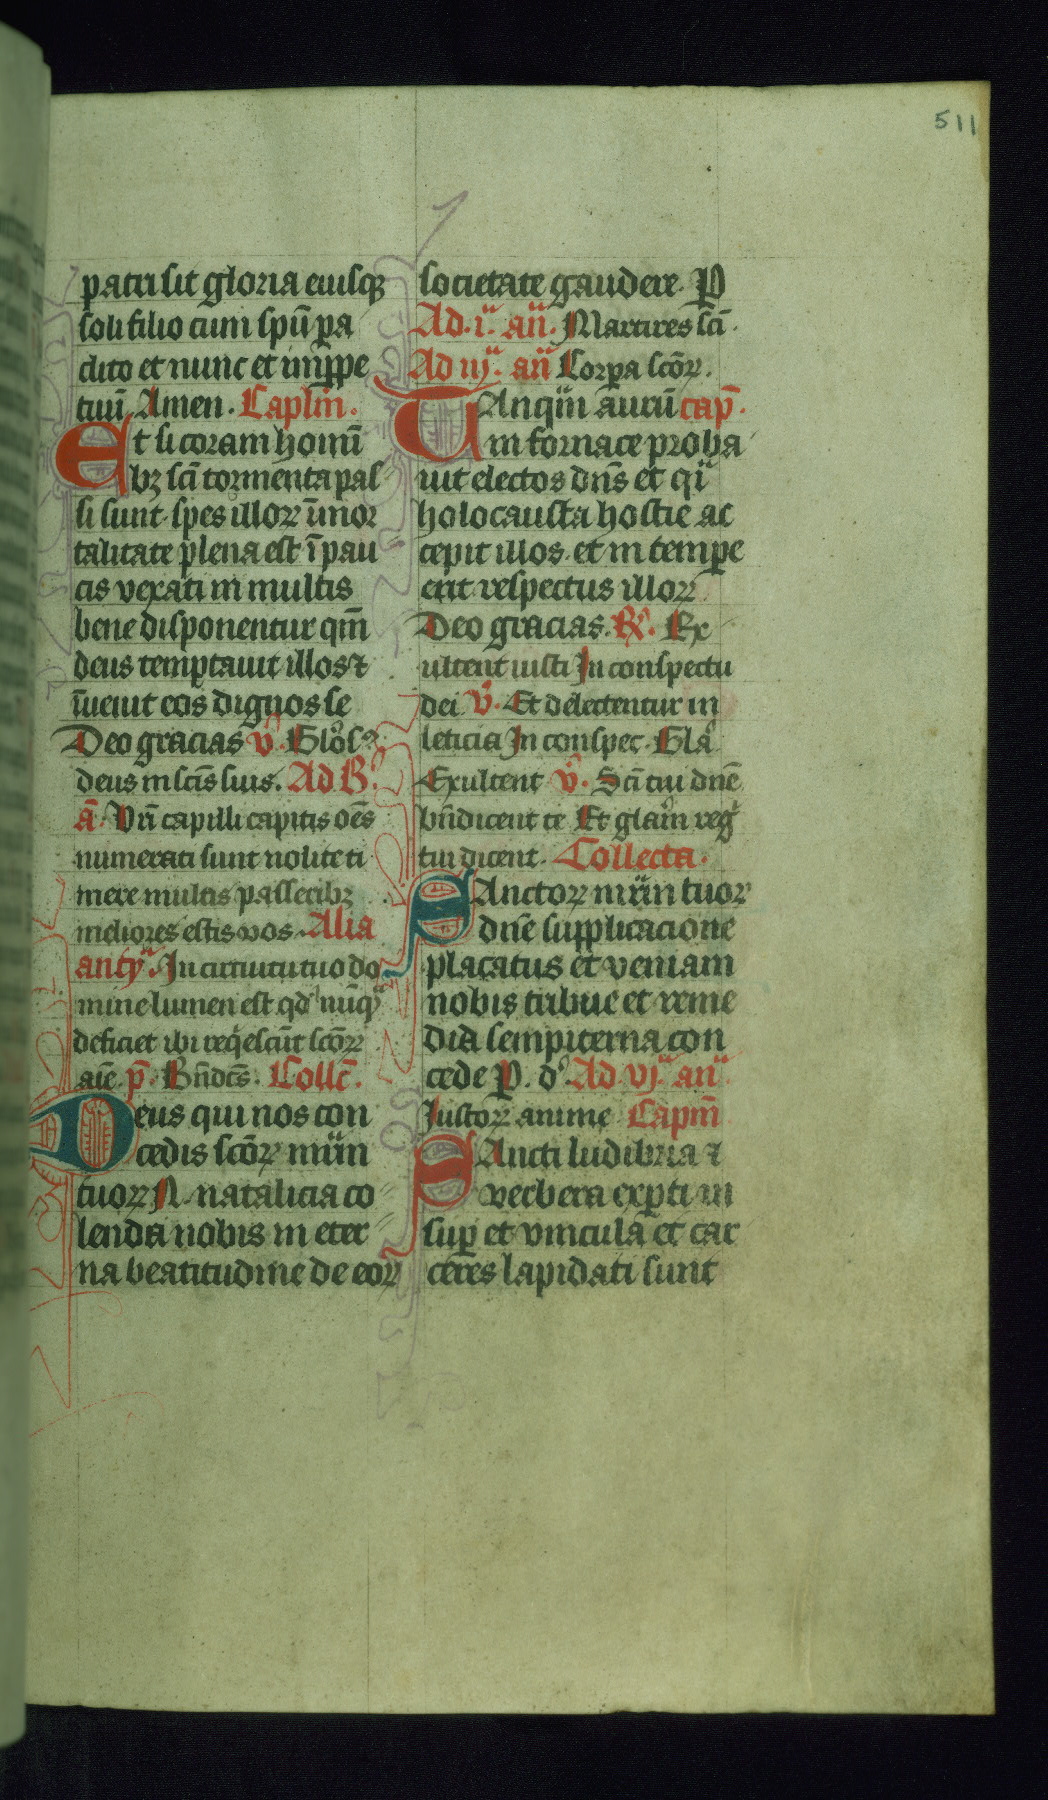 511
patri sit gloria eiusq
soli filio cum spū pa
clito et nunc et imppe
tuū Amen. Caplm̄.
Et si coram homī
bꝫ sc̄i tormenta pas
si sunt spes illoꝝ īmor
talitate plena est ī pau
cis vexati in multis
bene disponentur qm̄
deus temptauit illos ⁊
īuenit eos dignos se
Deo gracias v̄. Glos
deus in scīs suis. Ad B.
ā. Vr̄i capilli capitis oēs
numerati sunt nolite ti
mere multis passeribꝫ
meliores estis vos. Alia
anty. In cirtuitu tuo do
mine lumen est qd nūq
deficiet ibi reqescūt scōꝝ
aīe. p̄. Bn̄dcs. Collc̄.
Deus qui nos con
cedis scōꝝ mr̄m
tuoꝝ N. natalicia co
lenda nobis in eter
na beatitudine de eoꝝ
societate gaudere. P
Ad. i. an̄. Martires sc̄i.
Ad iij. an̄ Corpa scōꝝ.
Tanqm̄ aurū cap̄.
in fornace proba
uit electos dn̄s et qi
holocausta hostie ac
cepit illos. et in tempe
erit respectus illoꝝ
Deo gracias. R̄. Ex
ultent iusti In conspectu
dei v̄. Et delectentur in
leticia In conspec. Gla
Exultent v̄. Sc̄i tui dn̄e
bn̄dicent te Et glam reg
tui dicent. Collecta.
Sanctoꝝ mr̄m tuoꝝ
dn̄e supplicacione
placatus et veniam
nobis tribue et reme
dia sempiterna con
cede P. d. Ad vj. an̄.
Iustoꝝ anime Capm̄
Sancti ludibria ⁊
verbera expti in
sup et vincula et car
ceres lapidati sunt